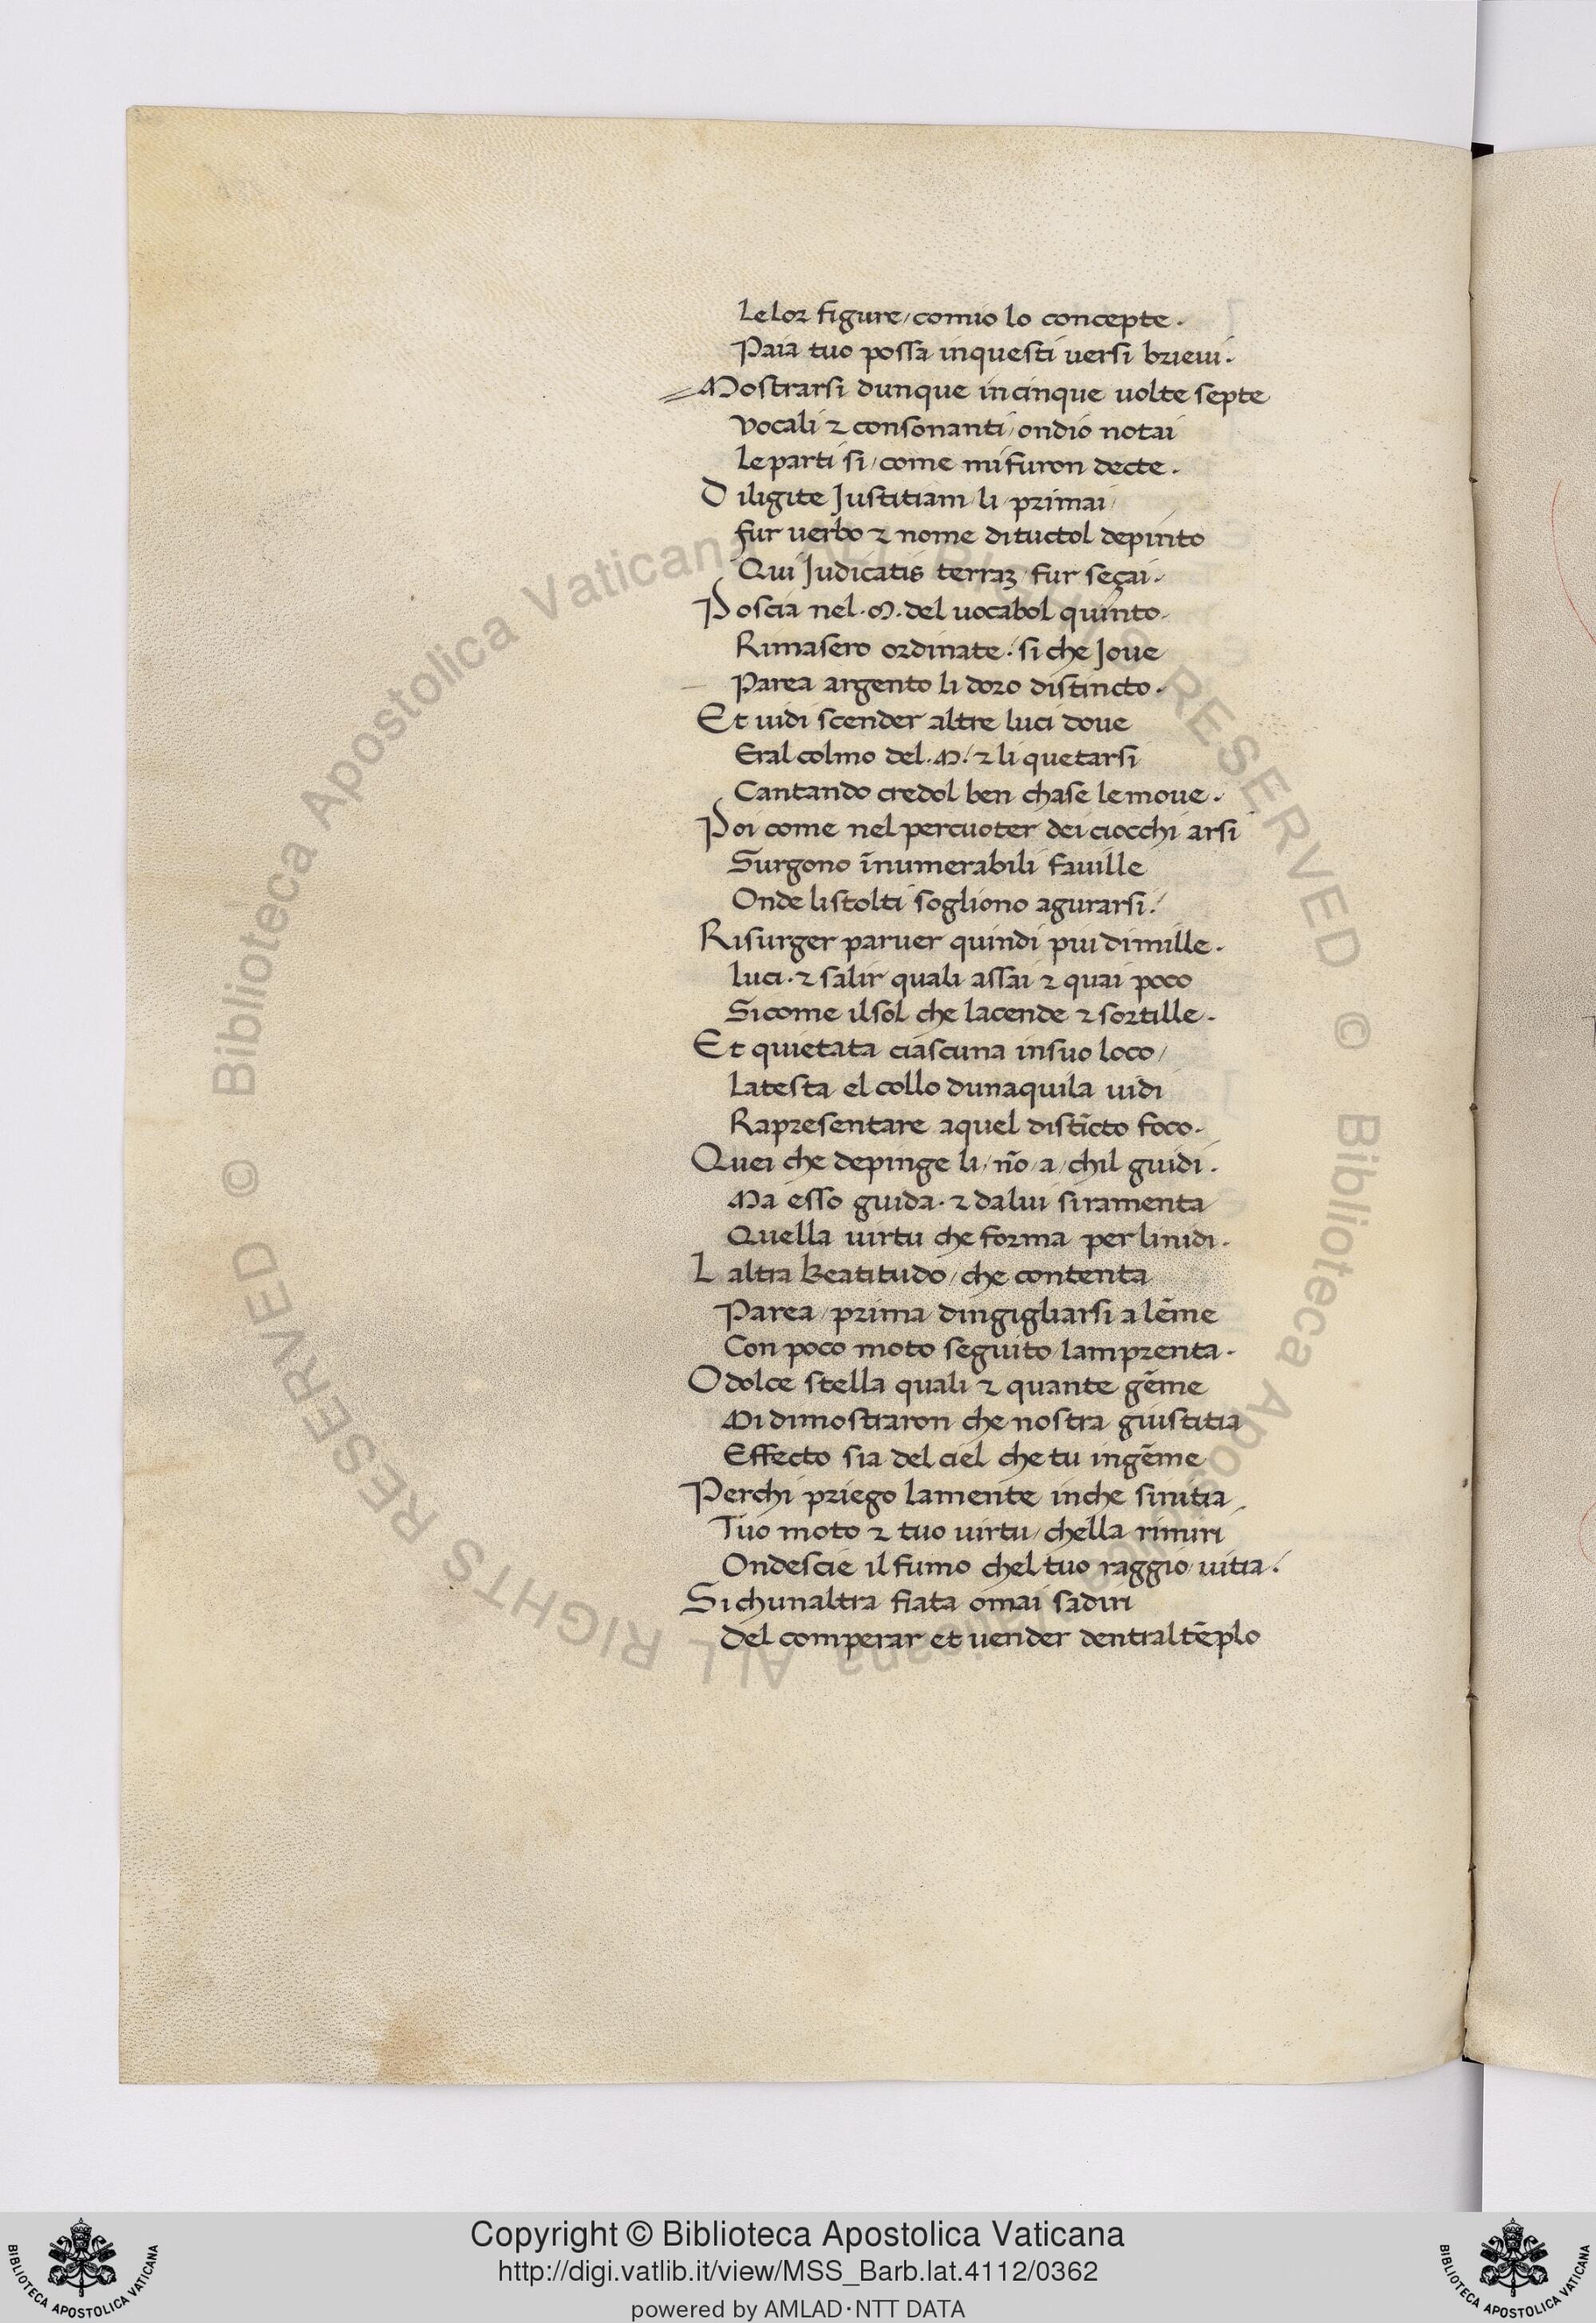 Le lor figure/ comio lo concepte.
Paia tuo possa inquesti uersi brieui.
Mostrarsi dunque incinque uolte septe
Vocali & consonanti/ ondio notai
Le parti si/ come mifuron decte.
Diligite Justitiam/ li/ primai/
fur uerbo & nome dituctol depinto
Qui Judicatis terraʒ/ fur seçai.
Poscia nel .M. del uocabol quinto.
Rimasero ordinate: si che Joue
Parea argento li doro distincto.
Et uidi scender altre luci doue
Eral colmo del .M./ & li quetarsi
Cantando credol ben chase lemoue.
Poi come nel percuoter dei ciocchi arsi
Surgono īnumerabili fauille
Onde listolti sogliono agurarsi:
Risurger paruer quindi piu dimille.
luci. & salir quali assai & quai poco
Sicome ilsol che lacende & sortille.
Et quietata ciascuna insuo loco/
Latesta el collo dunaquila uidi
Rapresentare aquel distīcto foco.
Quei che depinge li/ nō/ a/ chil guidi.
Ma esso guida. & dalui siramenta
Quella uirtu che forma per linidi.
Laltra beatitudo/ che contenta
Parea/ prima/ dingigliarsi a lēme
Con poco moto seguito lamprenta.
O dolce stella quali & quante gēme
Mi dimostraron che nostra giustitia
Effecto sia del ciel che tu ingēme
Perchi priego lamente inche sinitia
Tuo moto & tuo uirtu/ chella rimiri
Ondescie il fumo chel tuo raggio uitia:
Si chunaltra fiata omai sadiri
Del comperar et uender dentraltēplo
© Biblioteca Apostolica Vaticana ALL RIGHTS RESERVED © Biblioteca Apostolica Vaticana ALL RIGHTS RESERVED
Copyright © Biblioteca Apostolica Vaticana
http://digi.vatlib.it/view/MSS_Barb.lat.4112/0362
powered by AMLAD·NTT DATA
BIBLIOTECA APOSTOLICA VATICANA
BIBLIOTECA APOSTOLICA VATICANA